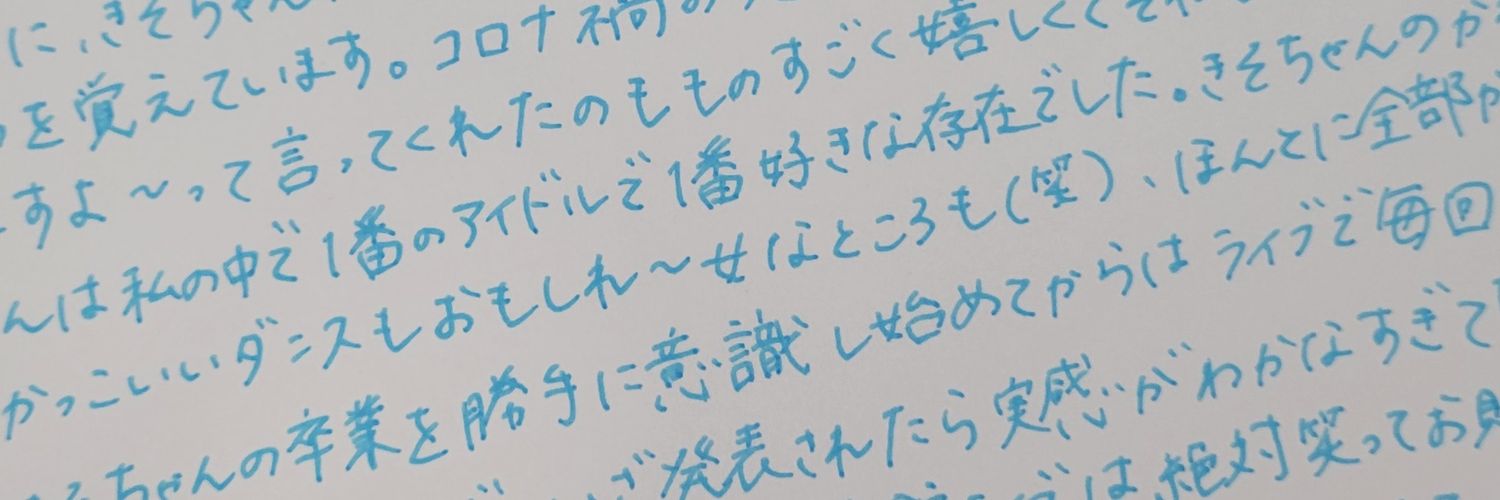 に、きそちゃん
を覚えています。コロナ禍の
すよ〜って言ってくれたのもものすごく嬉しくてそれ
んは私の中で1番のアイドルで1番好きな存在でした。きそちゃんのか
かっこいいダンスもおもしれ〜女なところも(笑)、ほんとに全部が
ちゃんの卒業を勝手に意識し始めてからはライブで毎回
発表されたら実感がわかなすぎて
は絶対笑ってお